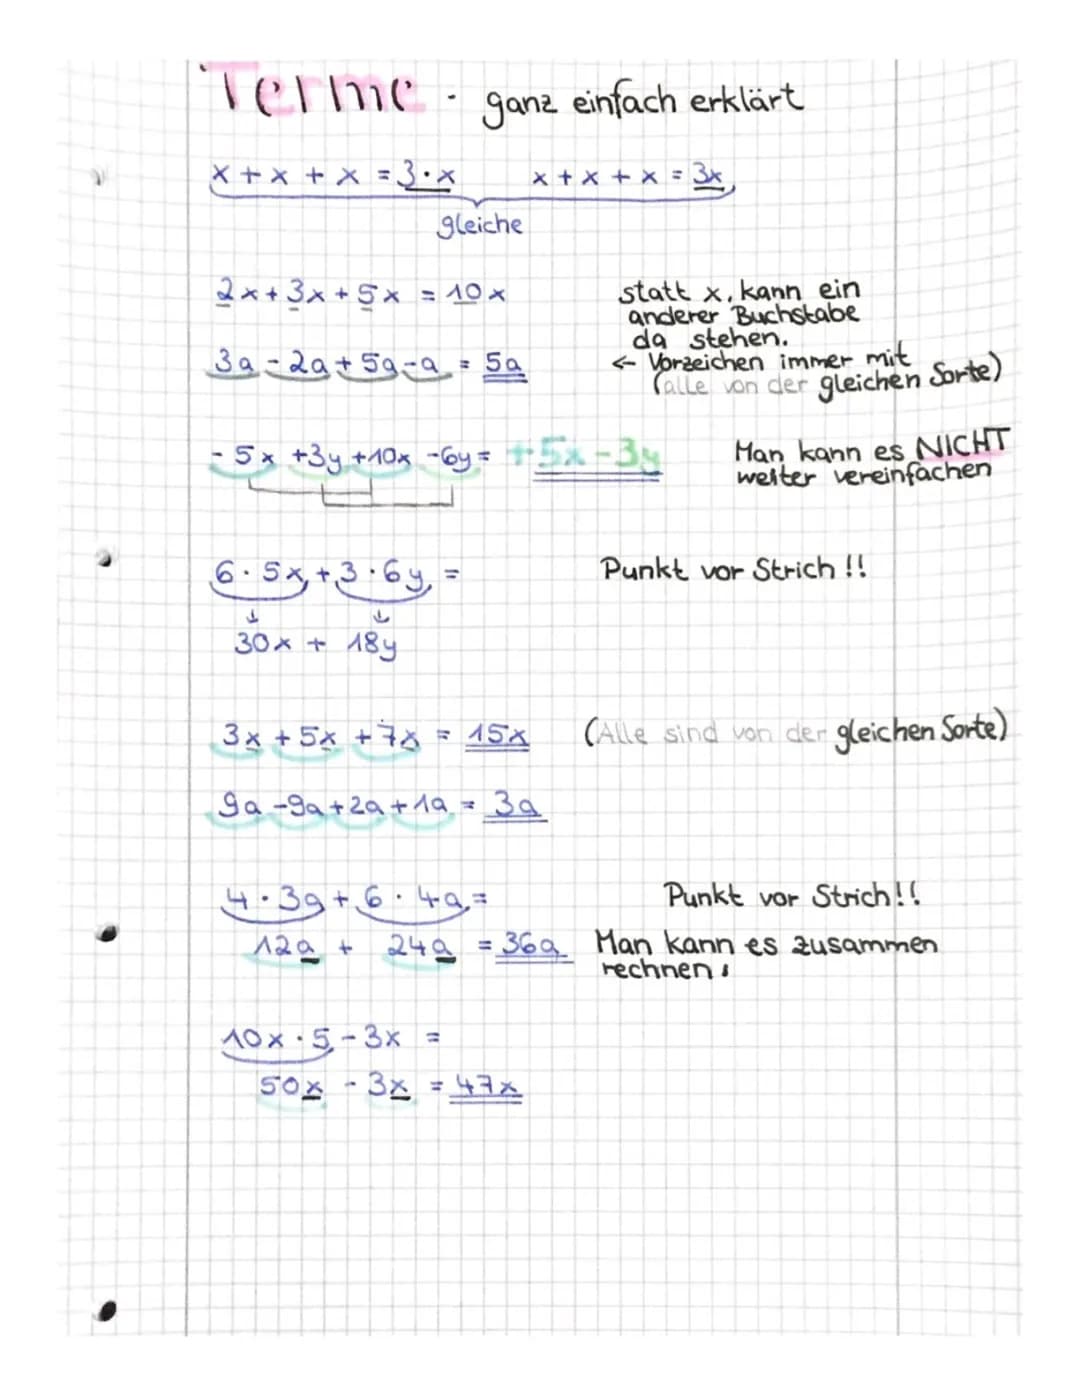 Terme - ganz einfach erklärt
x + x + x = 3 · x x + x + x = 3x
gleiche
2x + 3x + 5x = 10x
statt x, kann ein
anderer Buchstabe
da stehen.
3a - 2a + 5a - a = 5a
← Vorzeichen immer mit
(alle von der gleichen Sorte)
- 5x +3y +10x -6y = +5x -3y
Man kann es NICHT
weiter vereinfachen
6 · 5x + 3 · 6y =
Punkt vor Strich !!
↓ ↓
30x + 18y
3x + 5x + 7x = 15x (Alle sind von der gleichen Sorte)
9a -9a + 2a + 1a = 3a
4 · 3a + 6 · 4a =
Punkt vor Strich!!
12a + 24a = 36a
Man kann es zusammen
rechnen.
10x · 5 - 3x =
50x - 3x = 47x